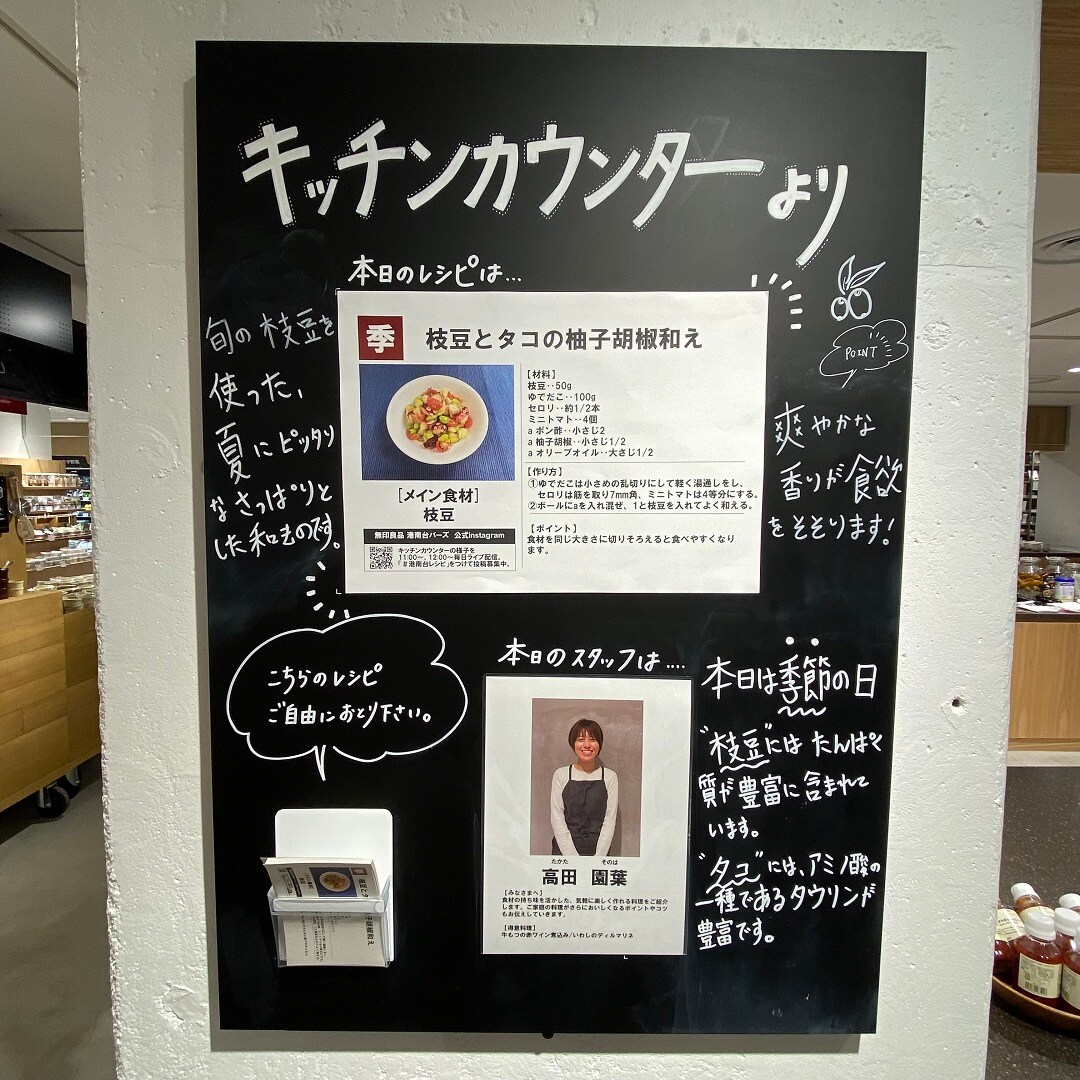 キッチンカウンターより
本日のレシピは...
旬の枝豆を
使った、
夏にピッタリ
なさっぱりと
した和え物。
季
枝豆とタコの柚子胡椒和え
【材料】
枝豆‥50g
ゆでだこ‥100g
セロリ‥約1/2本
ミニトマト‥4個
a ポン酢‥小さじ2
a 柚子胡椒‥小さじ1/2
a オリーブオイル‥大さじ1/2
【作り方】
①ゆでだこは小さめの乱切りにして軽く湯通しをし、
セロリは筋を取り7mm角、ミニトマトは4等分にする。
②ボールにaを入れ混ぜ、1と枝豆を入れてよく和える。
【ポイント】
食材を同じ大きさに切りそろえると食べやすくなり
ます。
[メイン食材]
枝豆
無印良品 港南台バーズ 公式instagram
キッチンカウンターの様子を
11:00〜、12:00〜毎日ライブ配信。
「#港南台レシピ」をつけて投稿募集中。
POINT
爽やかな
香りが食欲
をそそります!
こちらのレシピ
ご自由におとり下さい。
本日のスタッフは....
たかた そのは
高田 園葉
【みなさまへ】
食材の持ち味を活かした、気軽に楽しく作れる料理をご紹介
します。ご家庭の料理がさらにおいしくなるポイントやコツ
もお伝えしていきます。
【得意料理】
牛もつの赤ワイン煮込み/いわしのディルマリネ
本日は季節の日
"枝豆"には たんぱく
質が豊富に含まれて
います。
"タコ"には、アミノ酸の
一種であるタウリンが
豊富です。